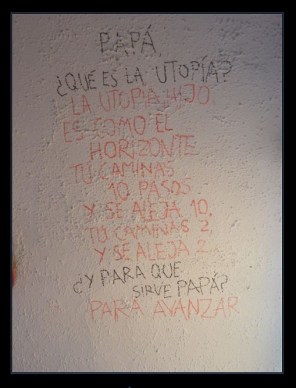 PAPÁ,
¿QUÉ ES LA UTOPÍA?
LA UTOPIA HIJO,
ES COMO EL
HORIZONTE
TU CAMINAS
10 PASOS
Y SE ALEJA 10,
TU CAMINAS 2,
Y SE ALEJA 2...
¿Y PARA QUE
SIRVE PAPÁ?
PARA AVANZAR